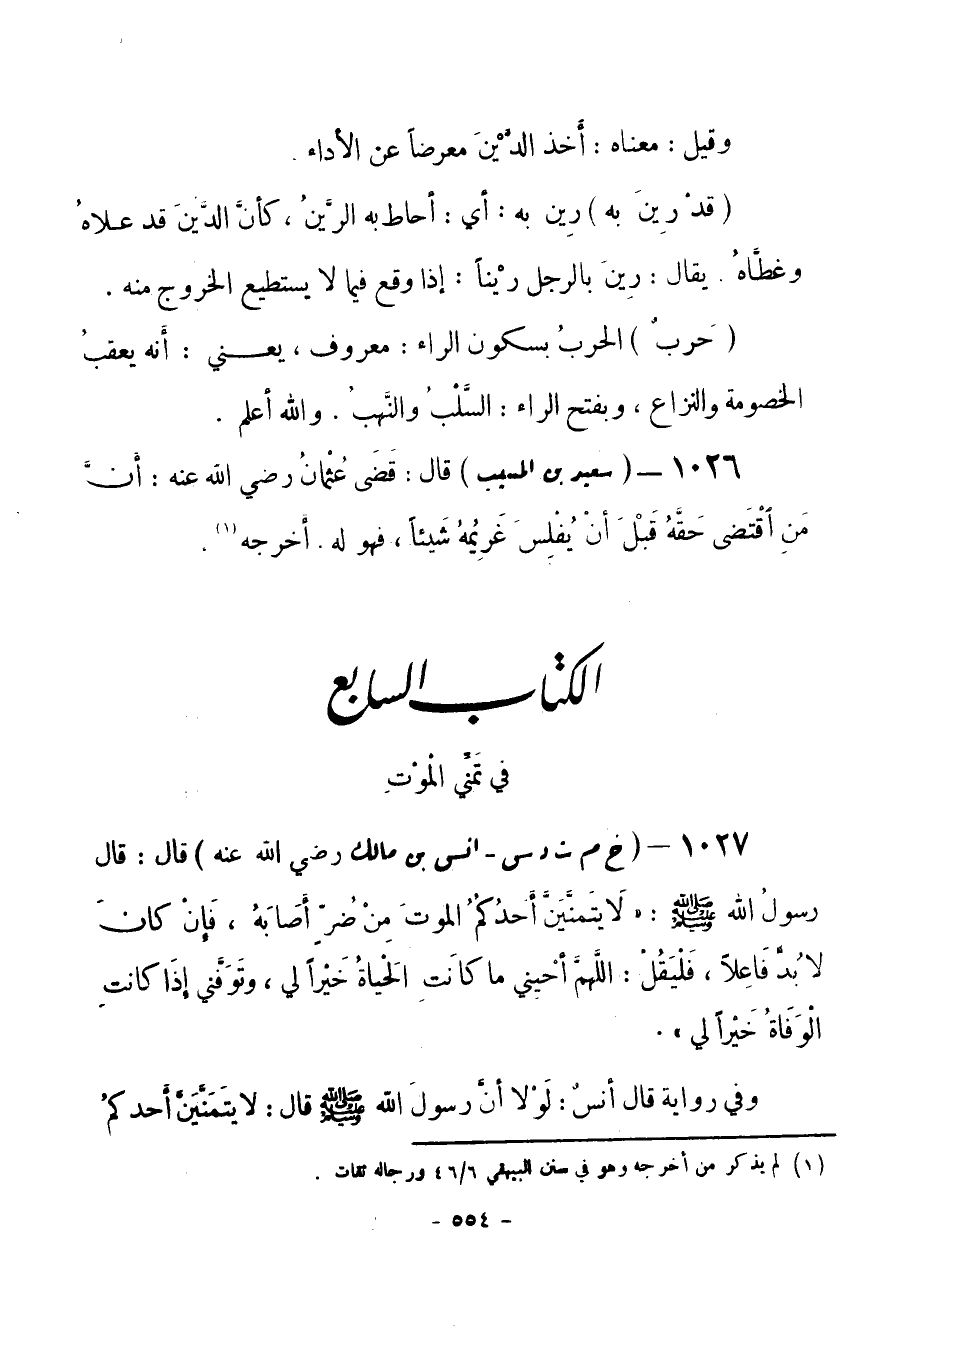 وقيل : معناه : أَخذ الدَّيْنَ معرضاً عن الأداء .
( قدْ رِينَ به ) رِين به : أي : أحاط به الرَّينُ ، كأنَّ الدَّينَ قد علاهُ
وغطَّاهُ . يقال : رِينَ بالرجل رَيْناً : إذا وقع فيما لا يستطيع الخروج منه .
( حَربٌ ) الحربُ بسكون الراء : معروف ، يعني : أَنه يعقبُ
الخصومة والنزاع ، وبفتح الراء : السَّلْبُ والنَّهبُ . والله أعلم .
١٠٢٦ – ( سعيد بن المسيب ) قال : قَضَى عُثْمانُ رضي الله عنه : أَنَّ
مَنِ اقْتَضى حَقَّهُ قَبْلَ أنْ يُفْلِسَ غَرِيمُهُ شَيئاً ، فهو له . أَخرجه (١) .
الكتاب السابع
في تَمَنِّي المْوْتِ
١٠٢٧ – ( خ م ت د س - أنس بن مالك رضي الله عنه ) قال : قال
رسولُ الله ﷺ : « لَا يَتمنَّيَنَّ أَحدُكُمُ الموتَ مِنْ ضُرٍّ أَصَابَهُ ، فَإِنْ كانَ
لا بُدَّ فَاعِلاً ، فَلْيَقُلْ : اللَّهمَّ أَحْيِني ما كانَتِ الحْياةُ خَيْراً لي ، وتَوَفَّني إِذَا كانتِ
الْوَفَاةُ خَيْراً لي » .
وفي رواية قال أَنسٌ : لَوْلا أَنَّ رسولَ الله ﷺ قال : لا يتَمَنَّيَنَّ أَحدكمُ
(١) لم يذكر من أخرجه وهو في سنن البيهقي ٤٦/٦ ورجاله ثقات .
- ٥٥٤ -